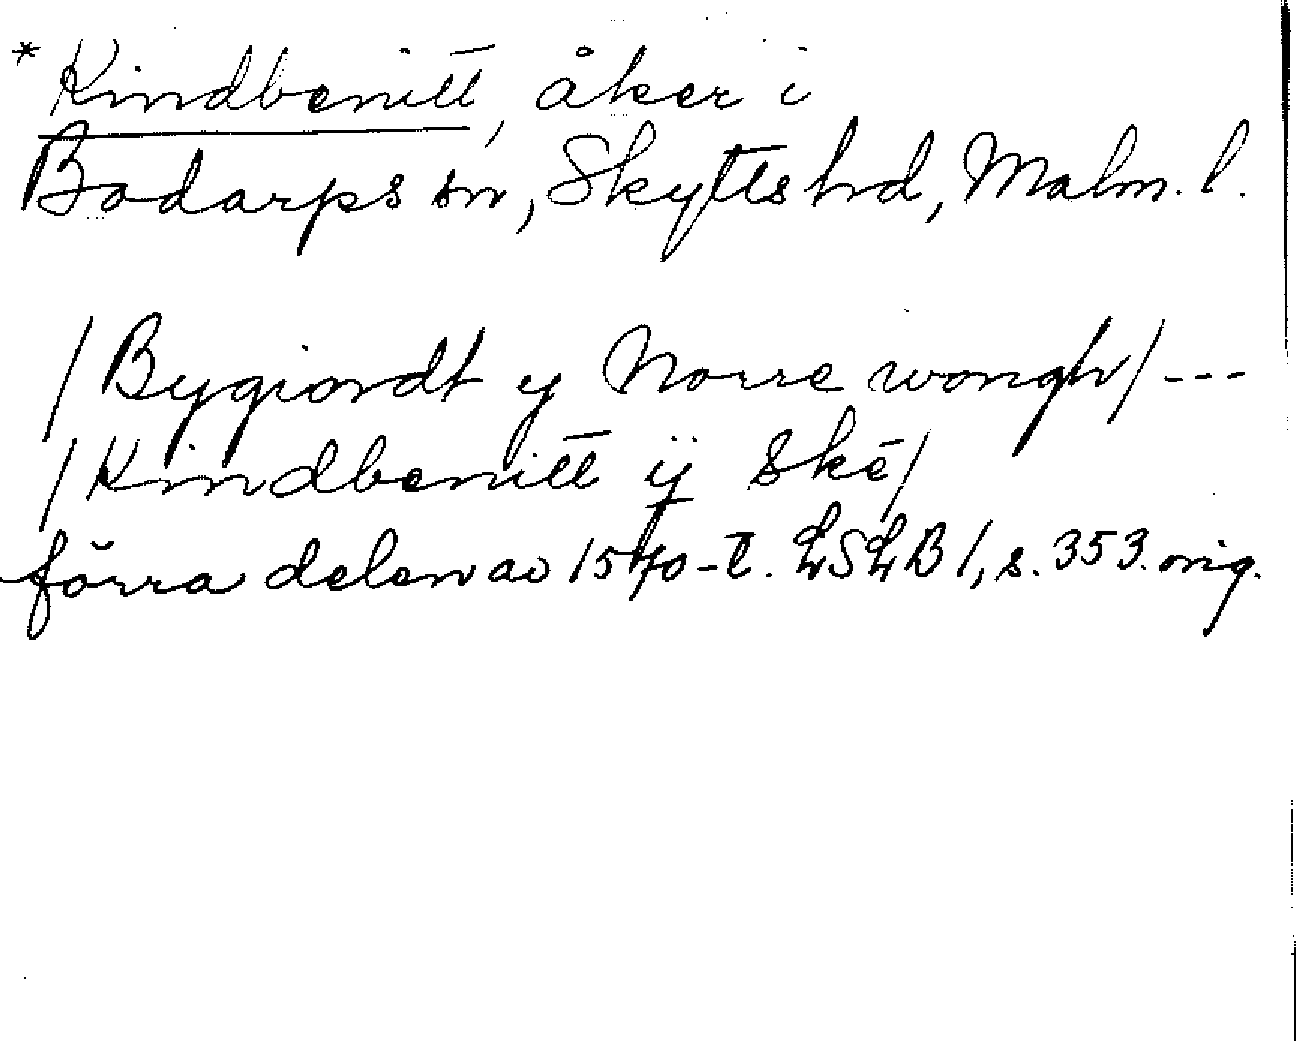 * Kindbenitt, åker i
Bodarps sn, Skytts hd, Malm. l.
/Bygiordt y Norre wongh/ ---
/Kindbenitt ÿ Skē/
förra delen av 1570-t. LSLB 1, s. 353. orig.